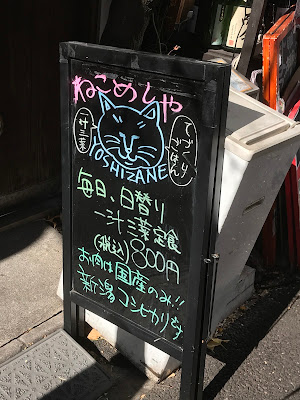 ねこめしや
一汁三菜
てづくりごはん
YOSHIZANE
毎日、日替り
一汁三菜定食
(税込)800円
お肉は国産のみ!!
新潟コシヒカリです